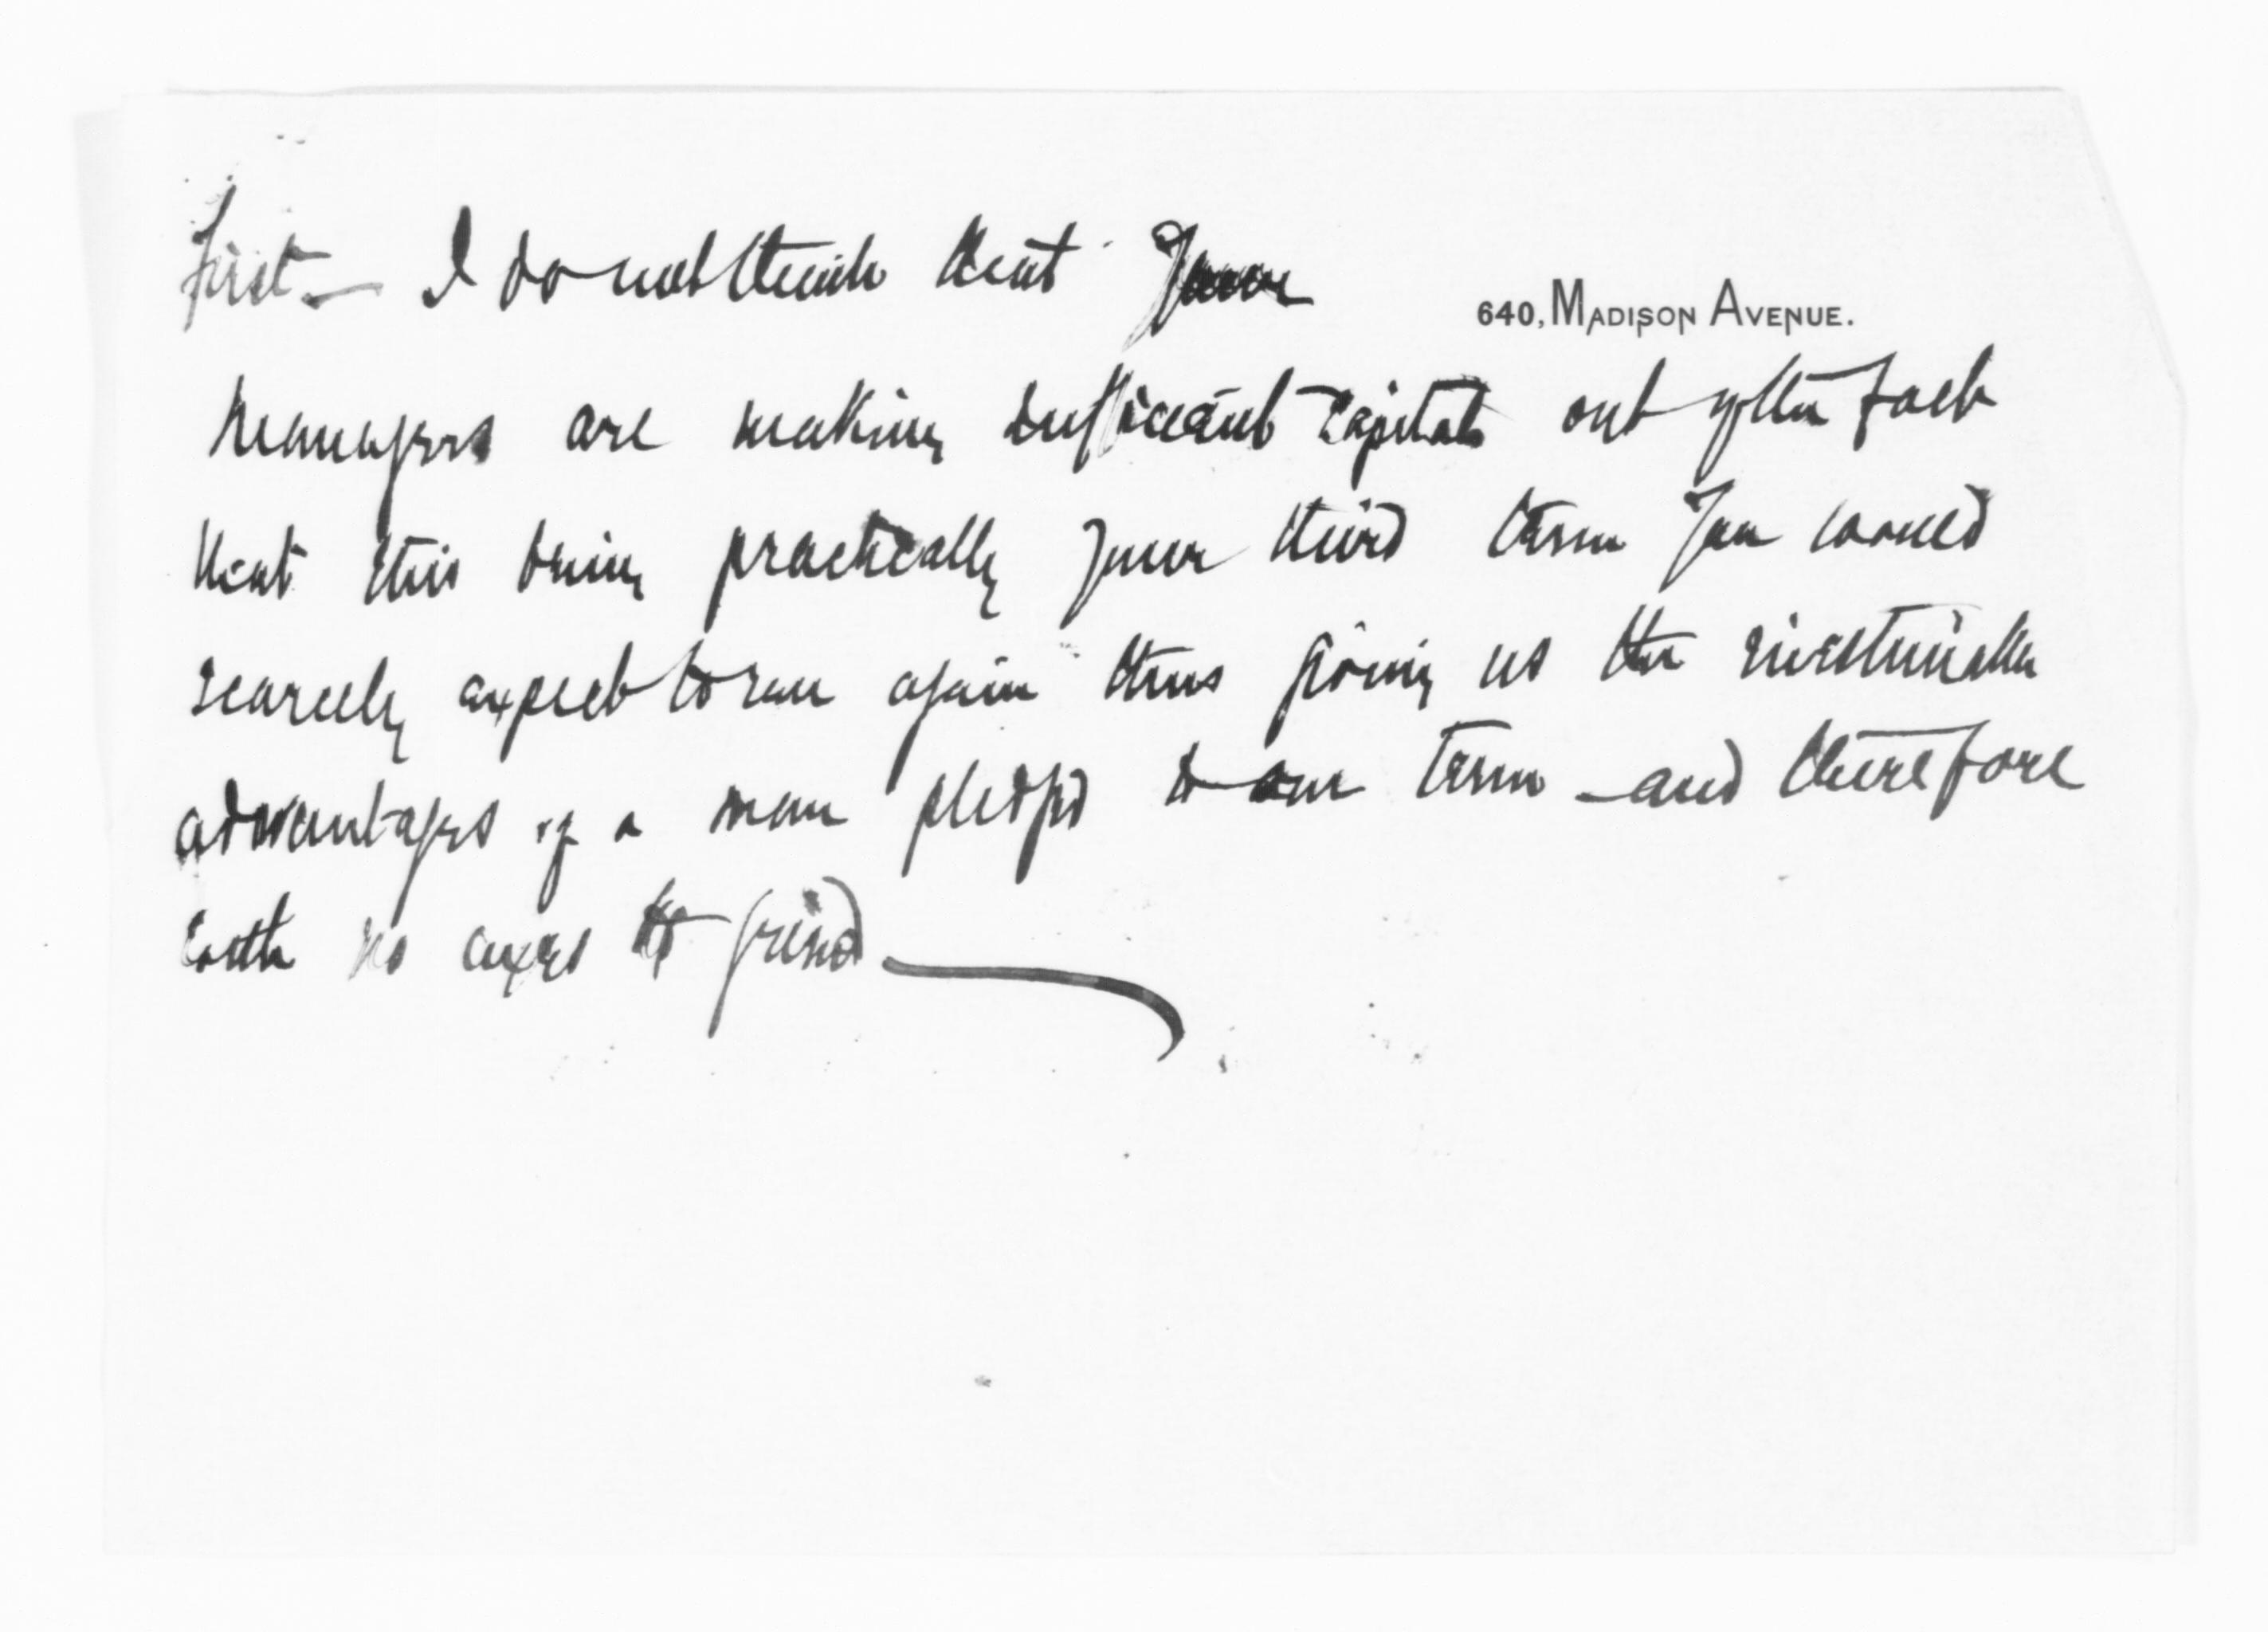 First — I do not think that your
640, MADISON AVENUE.
managers are making sufficient capital out of the fact
that this being practically your third term you would
scarcely expect to run again thus giving us the inestimable
advantages of a man pledged to one term - and therefore
with no axes to grind